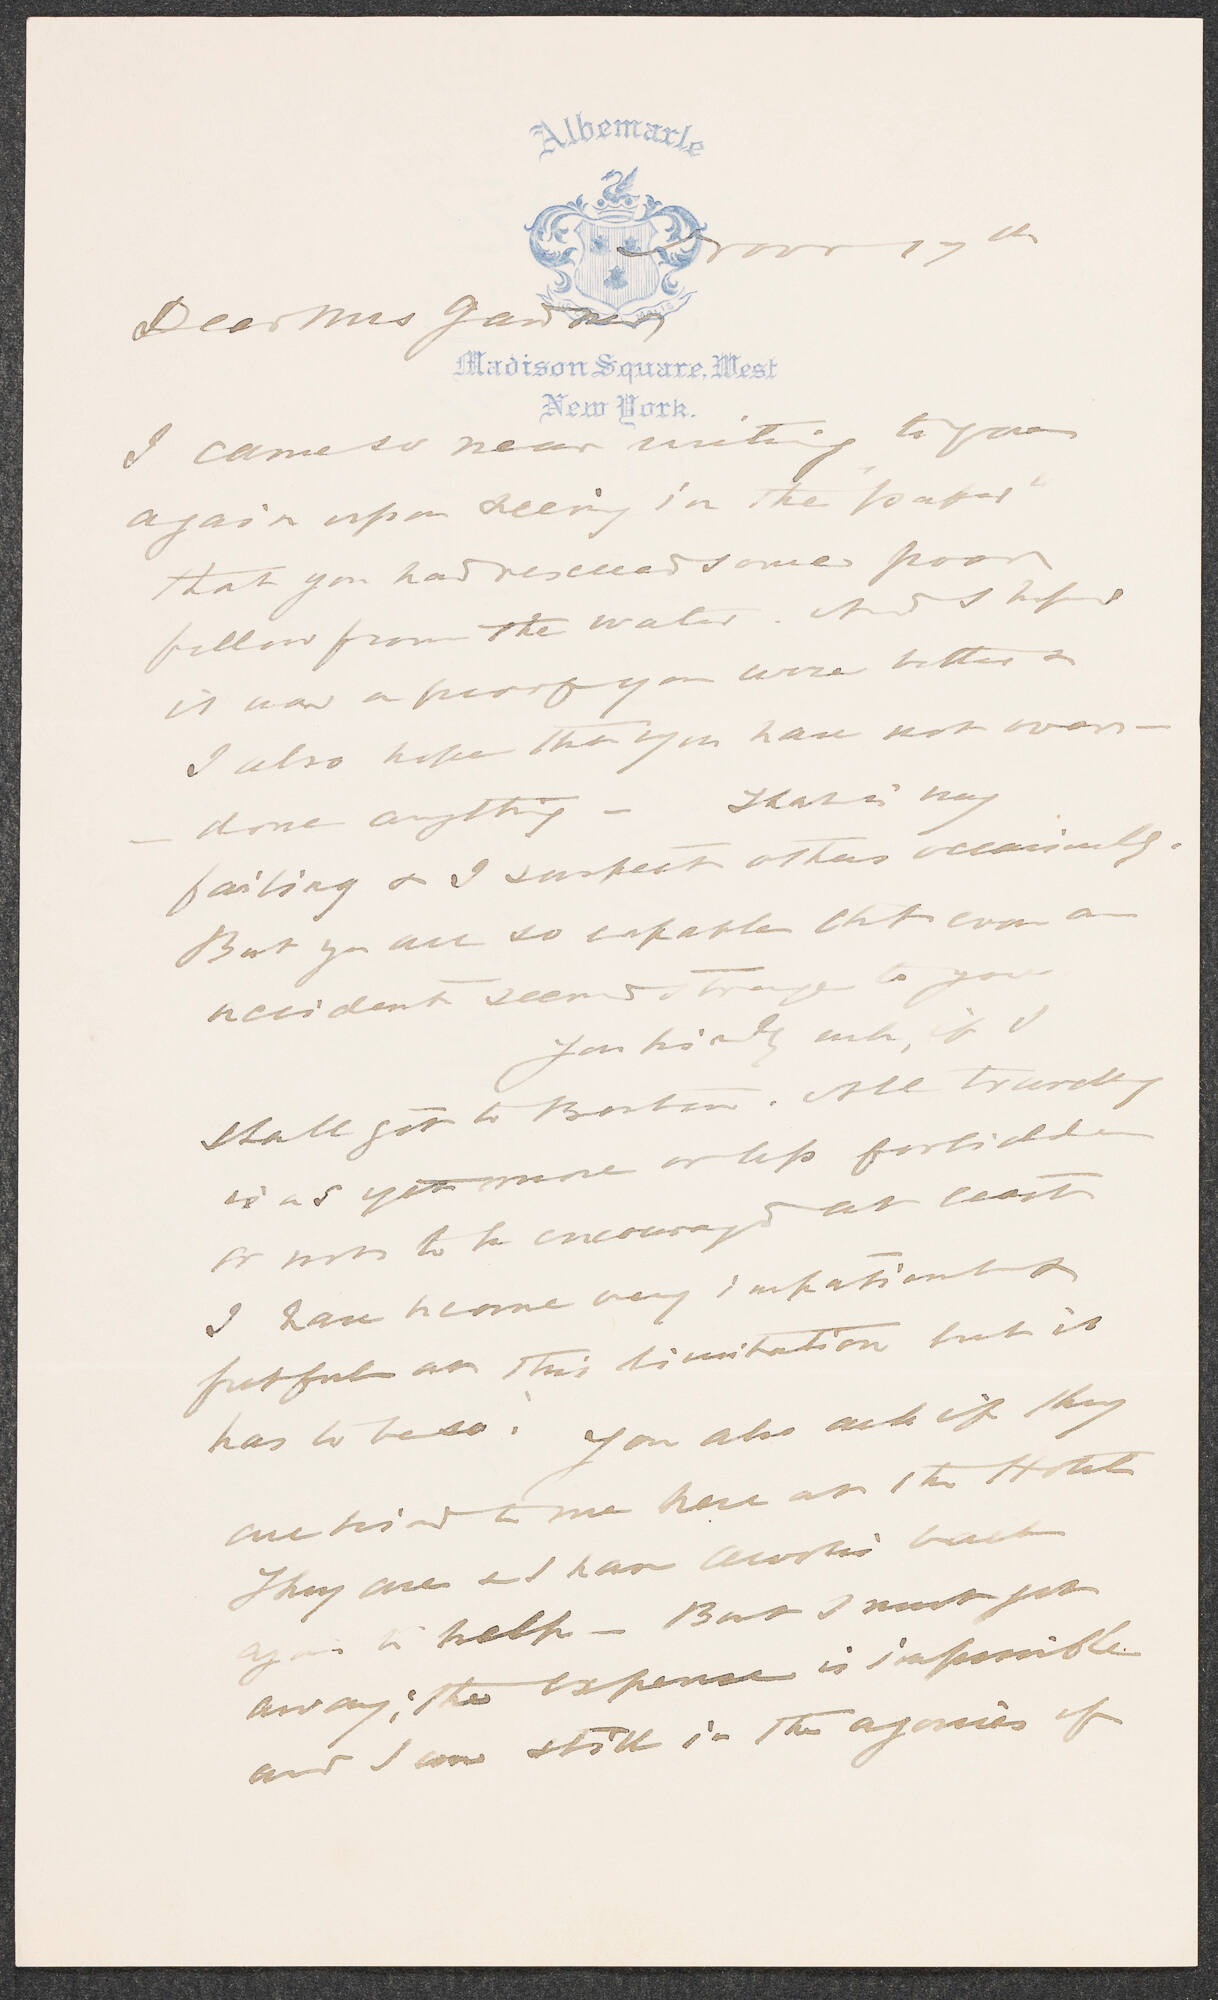 Albemarle
Novr 17th
Dear Mrs Gardner,
Madison Square, West
New York.
I came so near writing to you
again upon seeing in the "paper"
that you had rescued some poor
fellow from the water. And I hoped
it was a proof you were better &
I also hope that you have not over-
- done anything - That is my
failing & I suspect others occasionally.
But you are so capable that even an
accident seemed strange to you
You kindly ask, if I
shall get to Boston. All travelling
is as yet more or less forbidden
or not to be encouraged at least
I have become very impatient &
fretful at this limitation but it
has to be so. You also ask if they
are kind to me here at the Hotel
They are & I have back
again to help - But I must get
away; the expense is impossible
and I am still in the agonies of